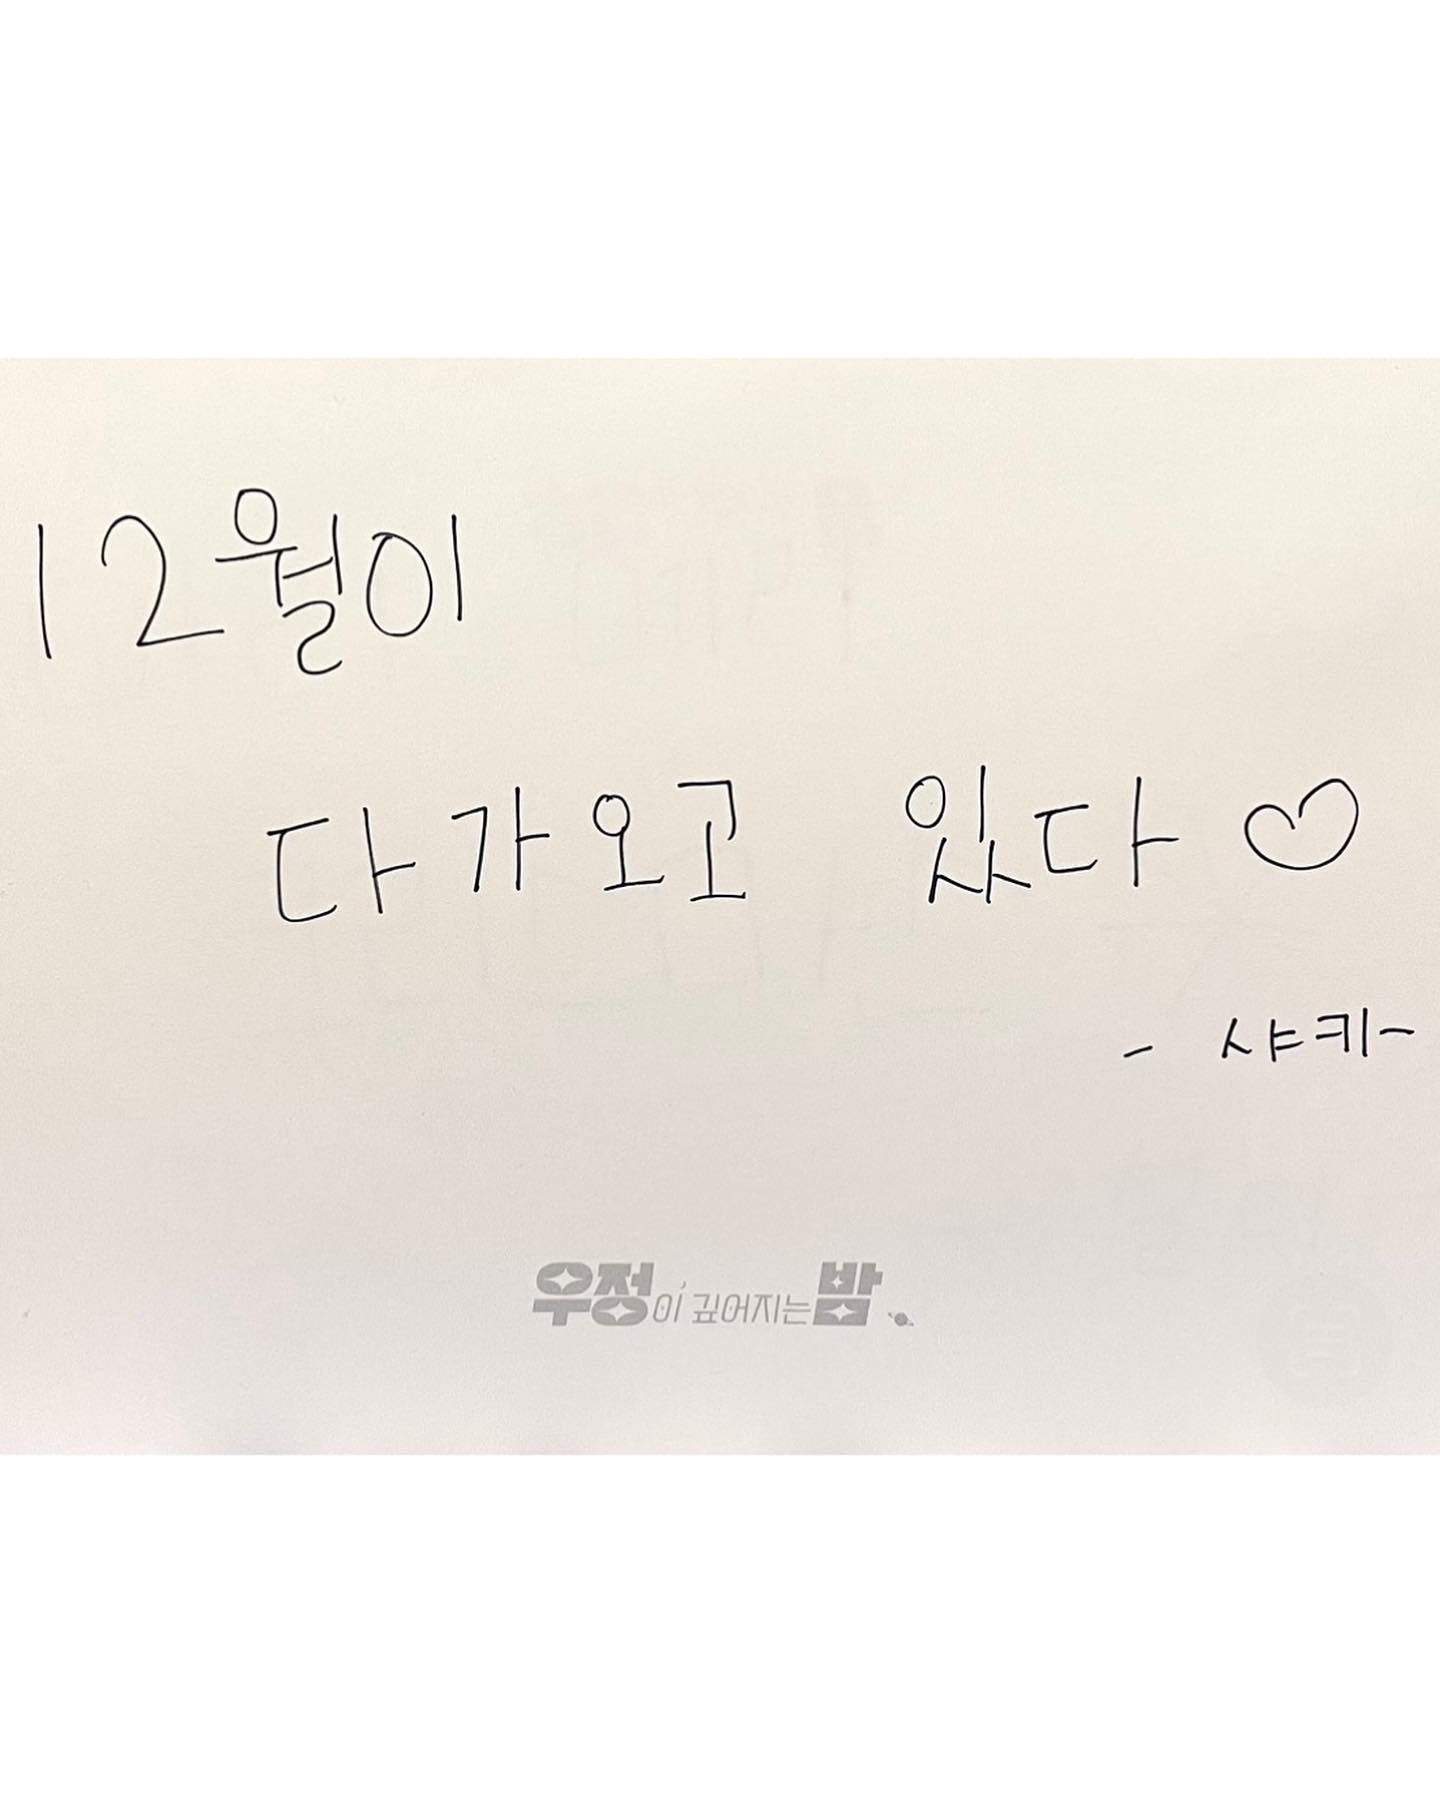 12월이
다가오고 있다♡
- 샤키-
우정이 깊어지는 밤